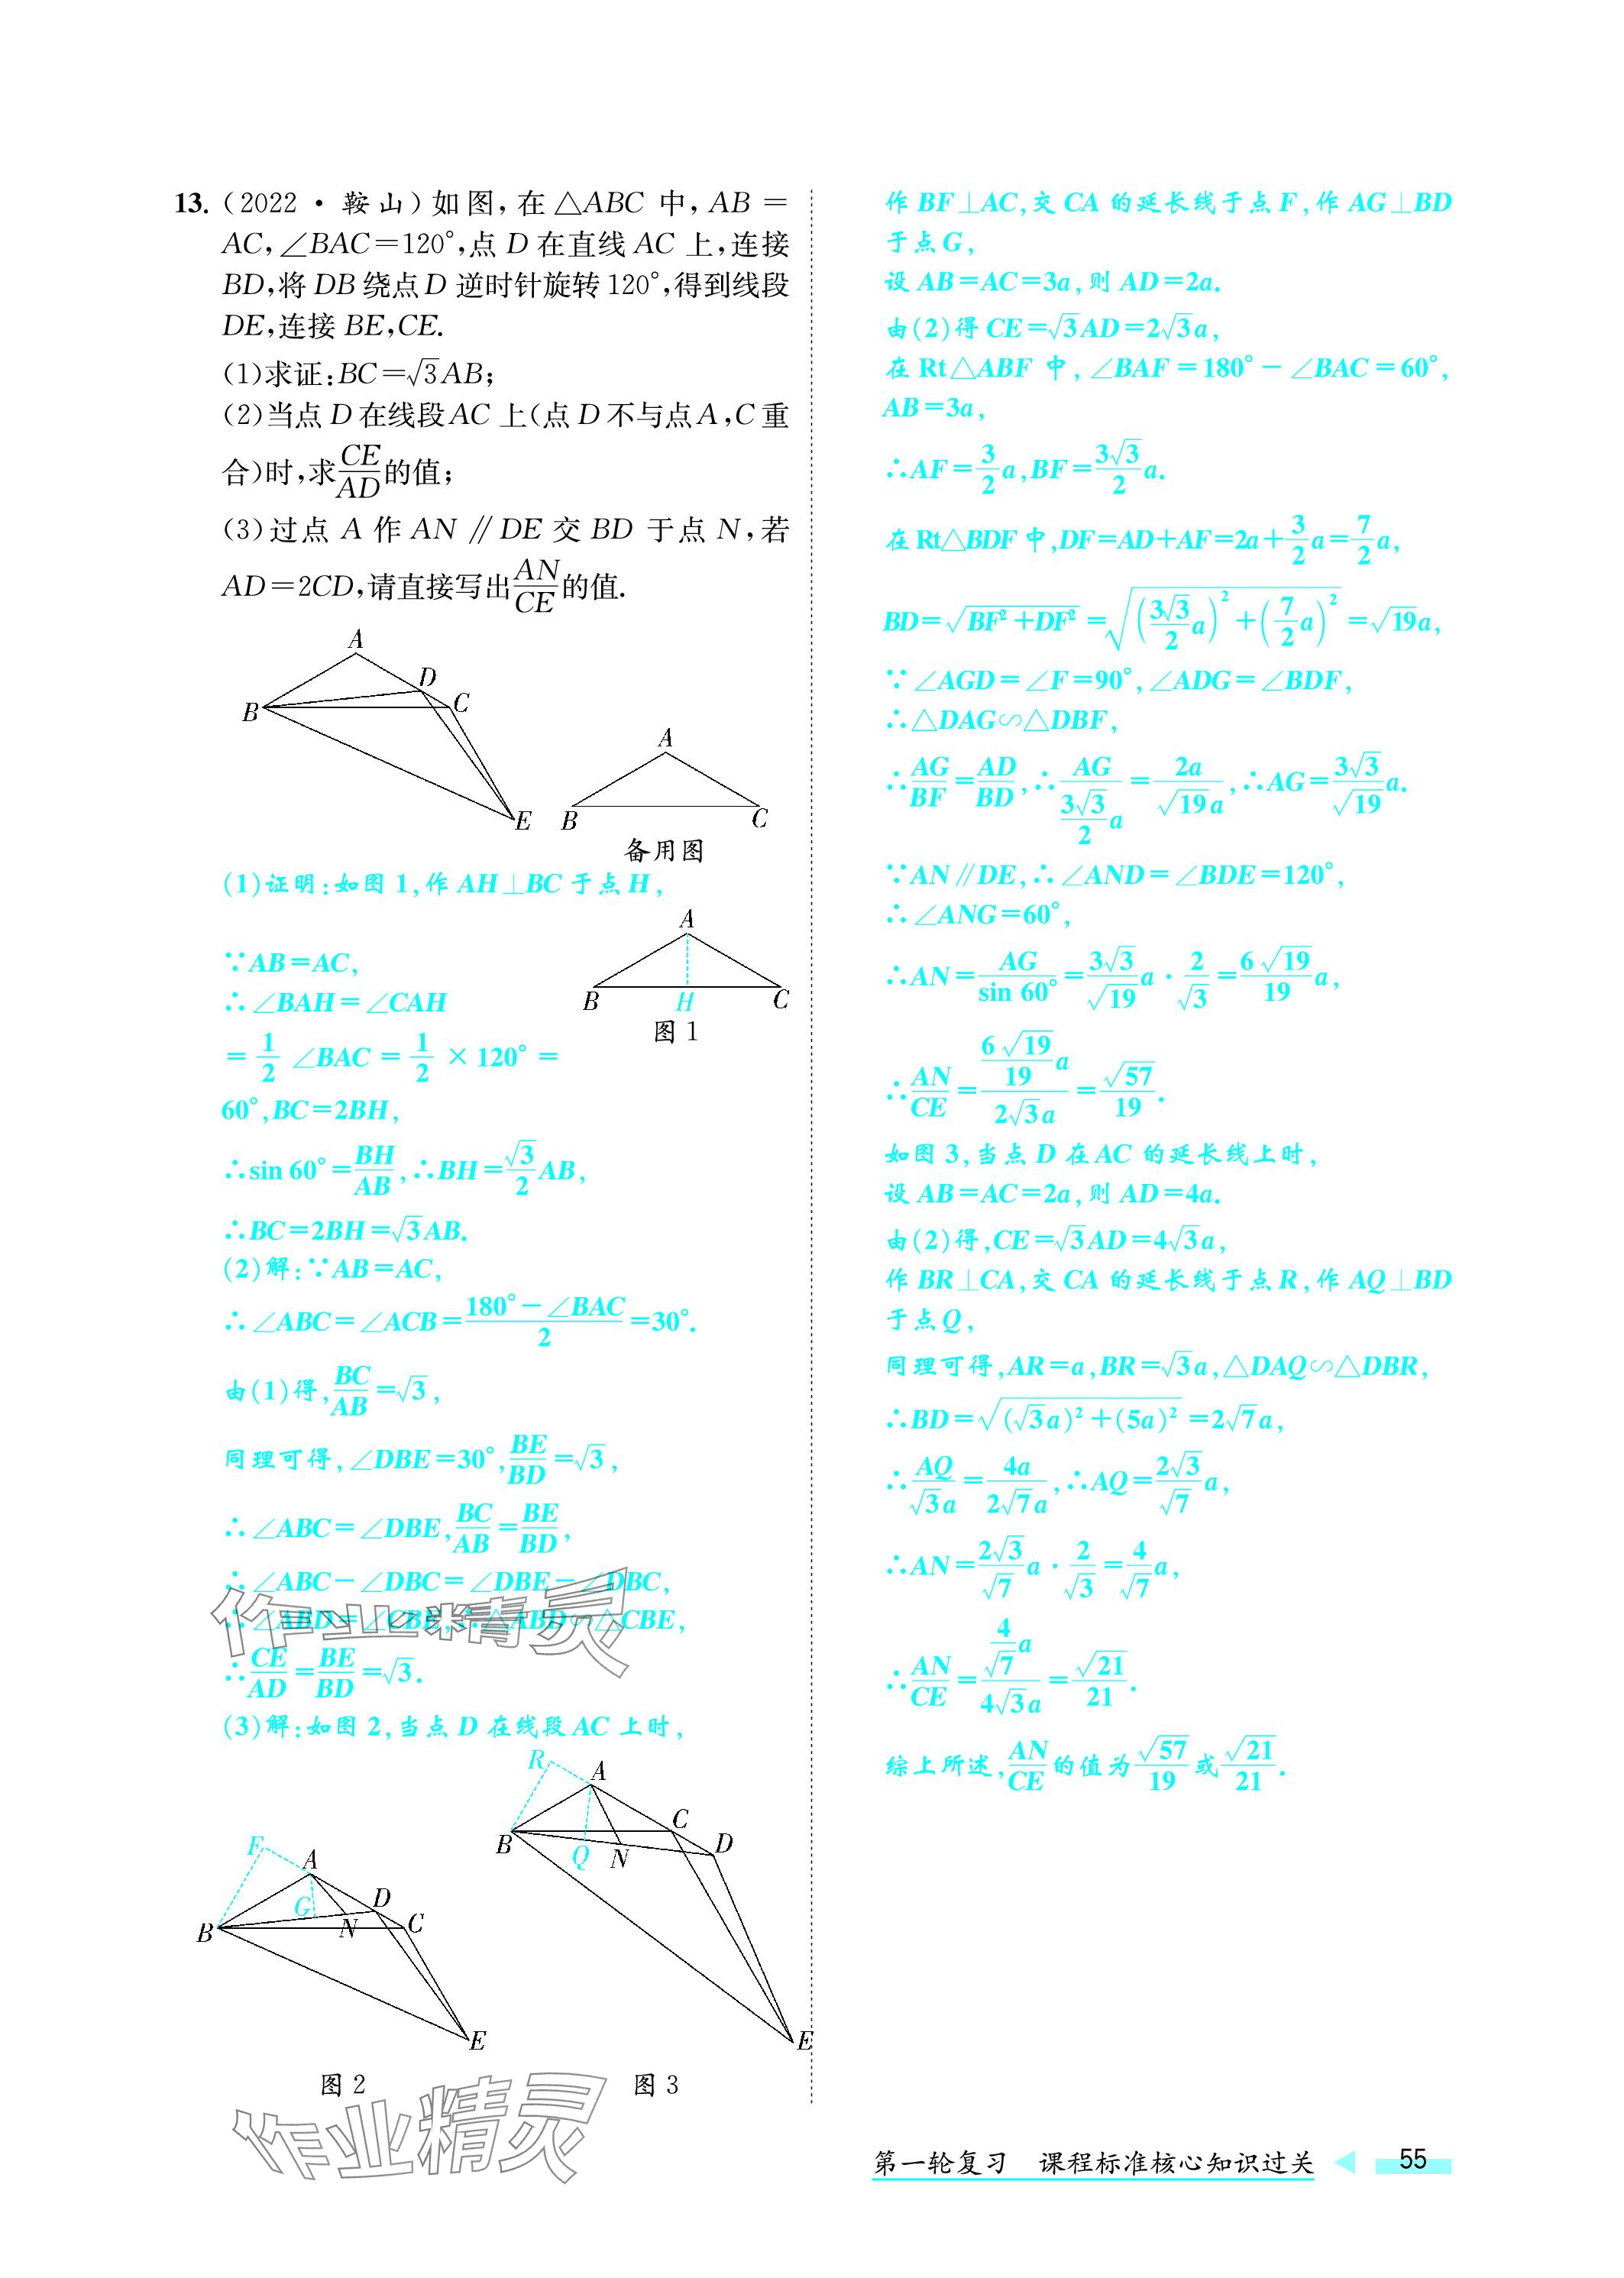 13. (2022·鞍山)如图,在△ABC 中,AB=
AC,∠BAC=120°,点 D 在直线 AC 上,连接
BD,将 DB 绕点 D 逆时针旋转 120°,得到线段
DE,连接 BE,CE.
(1)求证:BC=√3AB;
(2)当点 D 在线段 AC 上(点 D 不与点 A,C 重
合)时,求CE/AD的值;
(3)过点 A 作 AN∥DE 交 BD 于点 N,若
AD=2CD,请直接写出AN/CE的值.
A
D
B
C
E
A
B
C
备用图
(1)证明:如图 1,作 AH⊥BC 于点 H,
A
B
H
C
图 1
∵AB=AC,
∴∠BAH=∠CAH
=1/2 ∠BAC=1/2×120°=
60°,BC=2BH,
∴sin 60°=BH/AB,∴BH=√3/2 AB,
∴BC=2BH=√3AB.
(2)解:∵AB=AC,
∴∠ABC=∠ACB=(180°-∠BAC)/2=30°.
由(1)得,BC/AB=√3,
同理可得,∠DBE=30°,BE/BD=√3,
∴∠ABC=∠DBE,BC/AB=BE/BD,
∴∠ABC-∠DBC=∠DBE-∠DBC,
∴∠ABD=∠CBE,∴△ABD∽△CBE,
∴CE/AD=BE/BD=√3.
作业精灵
(3)解:如图 2,当点 D 在线段 AC 上时,
F
A
G
D
B
N
C
E
图 2
R
A
C
B
D
Q
N
E
图 3
作业精灵
作 BF⊥AC,交 CA 的延长线于点 F,作 AG⊥BD
于点 G,
设 AB=AC=3a,则 AD=2a.
由(2)得 CE=√3AD=2√3a,
在 Rt△ABF 中,∠BAF=180°-∠BAC=60°,
AB=3a,
∴AF=3/2 a,BF=3√3/2 a.
在 Rt△BDF 中,DF=AD+AF=2a+3/2 a=7/2 a,
BD=√(BF²+DF²)=√((3√3/2 a)²+(7/2 a)²)=√19a,
∵∠AGD=∠F=90°,∠ADG=∠BDF,
∴△DAG∽△DBF,
∴AG/BF=AD/BD,∴AG/(3√3/2 a)=2a/(√19a),∴AG=3√3/√19 a.
∵AN∥DE,∴∠AND=∠BDE=120°,
∴∠ANG=60°,
∴AN=AG/sin 60°=3√3/√19 a·2/√3=6√19/19 a,
∴AN/CE=(6√19/19 a)/(2√3a)=√57/19.
如图 3,当点 D 在 AC 的延长线上时,
设 AB=AC=2a,则 AD=4a.
由(2)得,CE=√3AD=4√3a,
作 BR⊥CA,交 CA 的延长线于点 R,作 AQ⊥BD
于点 Q,
同理可得,AR=a,BR=√3a,△DAQ∽△DBR,
∴BD=√((√3a)²+(5a)²)=2√7a,
∴AQ/(√3a)=4a/(2√7a),∴AQ=2√3/√7 a,
∴AN=2√3/√7 a·2/√3=4/√7 a,
∴AN/CE=(4/√7 a)/(4√3a)=√21/21.
综上所述,AN/CE的值为√57/19或√21/21.
第一轮复习 课程标准核心知识过关 55